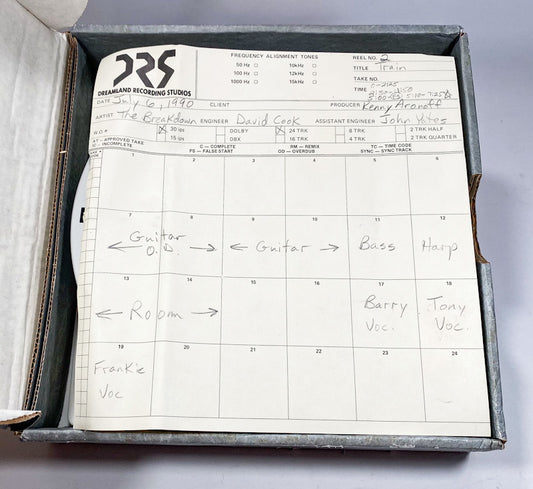 DRS
DREAMLAND RECORDING STUDIOS
FREQUENCY ALIGNMENT TONES
50 Hz 10kHz
100 Hz 12kHz
1000 Hz 15kHz
REEL NO. 2
TITLE Train
TAKE NO.
TIME
DATE July 6, 1990 CLIENT PRODUCER Kenny Aronoff
ARTIST The Breakdown ENGINEER David Cook ASSISTANT ENGINEER John Yates
30 ips DOLBY 24 TRK 8 TRK 2 TRK HALF
15 ips DBX 16 TRK 4 TRK 2 TRK QUARTER
C — COMPLETE RM — REMIX TC — TIME CODE
IC — INCOMPLETE FS — FALSE START OD — OVERDUB SYNC — SYNC TRACK
1 2 3 4 5 6
7 8 9 10 11 12
← Guitar → ← Guitar → Bass Harp
O.D.
13 14 15 16 17 18
← Room → Barry Tony
Voc. Voc.
19 20 21 22 23 24
Frankie
Voc